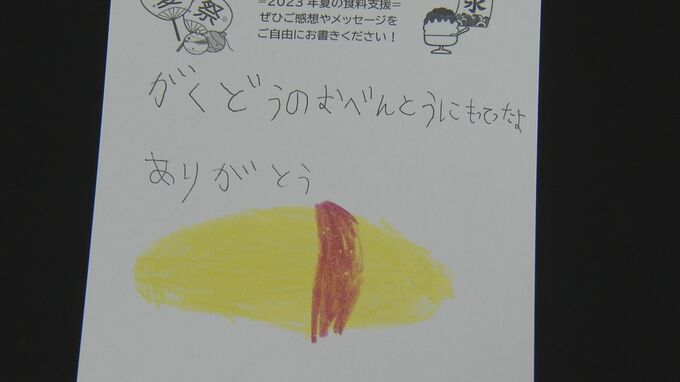 祭
=2023年夏の食料支援=
ぜひご感想やメッセージを
ご自由にお書きください!
氷
がくどうのむべんとうにもってったよ
ありがとう